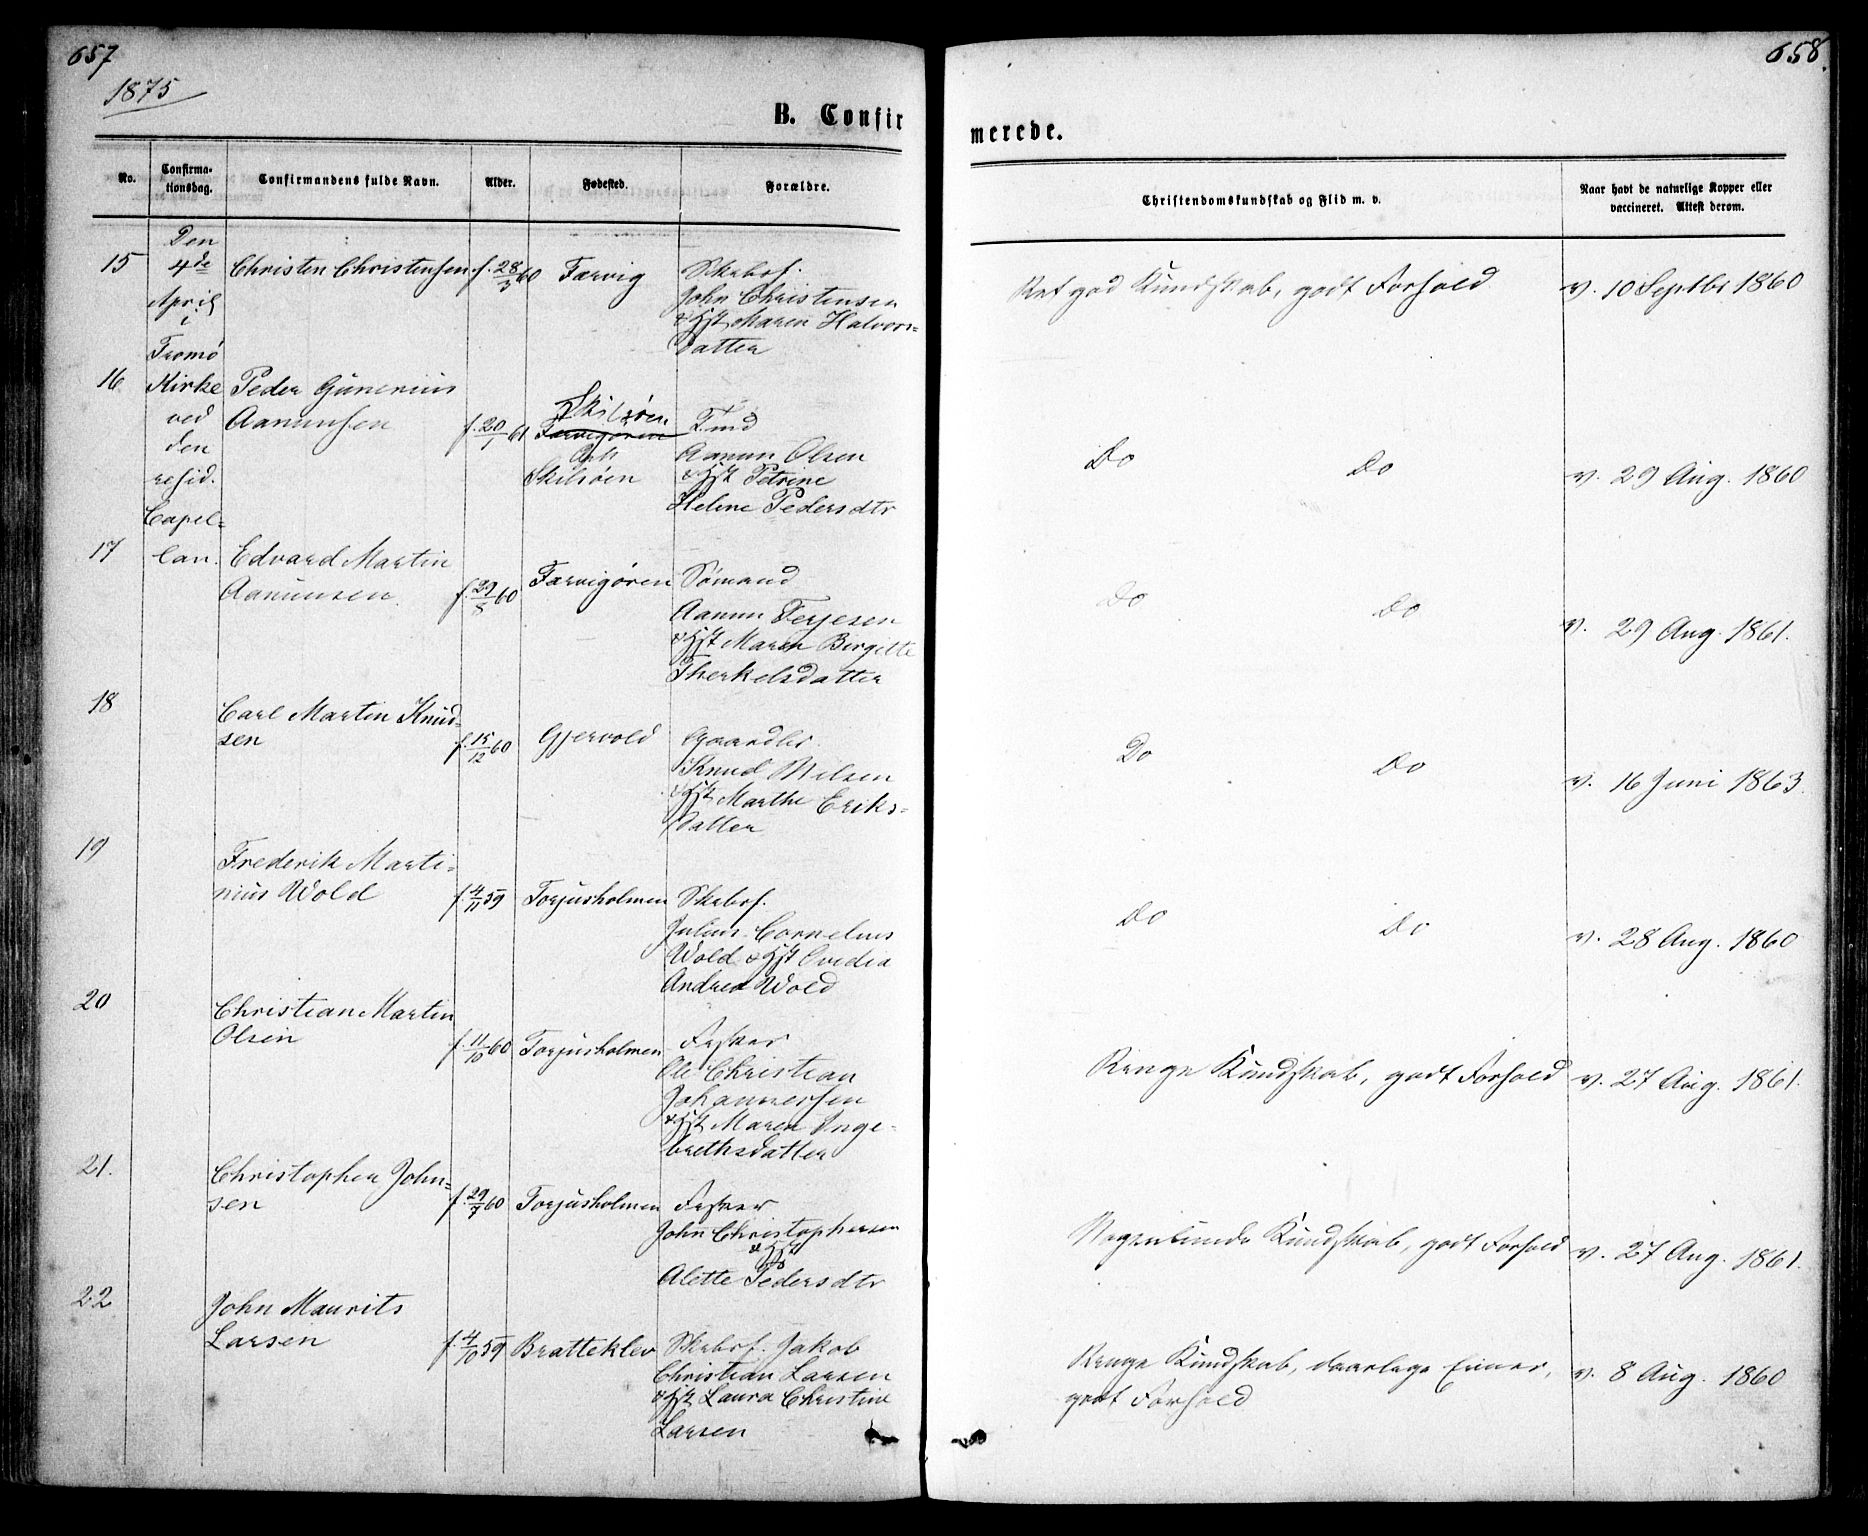 657
1875
B. Confir
No.
Confirma-
tionsdag.
Confirmandens fulde Navn.
Alder.
Fødested.
Forældre.
Den
15 4de Christen Christensen f. 28/3 60 Færvig Skibsf.
April John Christensen
i & Hst Maren Halvors-
Tromø datter
16 Kirke Peder Gunerius
ved Aanunsen f. 20/1 61 Skilsøen
Færvigøren
Opl:
Skilsøen
F. md
den Aanun Olsen
resid. & Hst Petrine
Capel- Helene Pedersdtr
17 lan. Edvard Martin
Aanunsen f. 29/8 60 Færvigøren Sømand
Aanun Terjesen
& Hst Maren Birgitte
Therkelsdatter
18 Carl Martin Knud-
sen f. 15/12 60 Gjervold Gaardbr.
Knud Nilsen
& Hst Marthe Eriks-
datter
19 Frederik Marti-
nius Wold f. 4/11 59 Torjusholmen Skibsf.
Julius Cornelius
Wold & Hst Ovedia
Andrea Wold
20 Christian Martin
Olsen f. 11/10 60 Torjusholmen Fisker
Ole Christian
Johannesen
& Hst Maren Inge-
brethsdatter
21. Christopher John-
sen f. 29/7 60 Torjusholmen Fisker
John Christophersen
& Hst
Alette Pedersdtr
22 John Maurits
Larsen f. 4/10 59 Bratteklev Skibsf. Jakob
Christian Larsen
& Hst Laura Christine
Larsen
658.
merede.
Christendomskundskab og Flid m. v.
Naar havt de naturlige Kopper eller
vaccineret. Attest derom.
Ret god Kundskab, godt Forhold v. 10 Septbr 1860
Do Do v. 29 Aug. 1860
Do Do v. 29 Aug. 1861.
Do Do v. 16 Juni 1863.
Do Do v. 28 Aug. 1860
Ringe Kundskab, godt Forhold v. 27 Aug. 1861.
Nogenlunde Kundskab, godt Forhold v. 27 Aug. 1861.
Ringe Kundskab, daarlige Evner, v. 8 Aug. 1860
godt Forhold